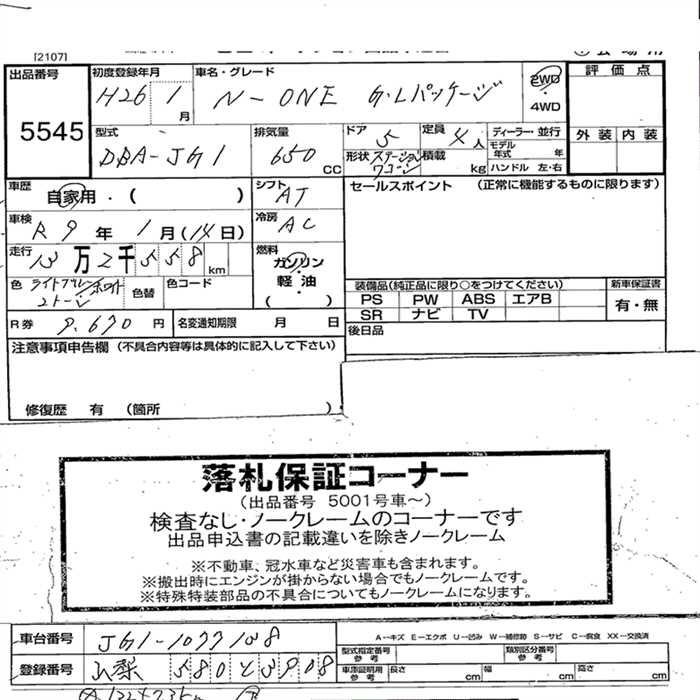 [2107]
出品番号 5545
初度登録年月 H26 1月
車名・グレード N-ONE G・Lパッケージ
2WD・4WD
評価点
外装 内装
型式 DBA-JG1
排気量 650 CC
ドア 5
定員 4人
形状 ステーションワゴン
積載 kg
ディーラー・並行
モデル年式 年
ハンドル 左・右
車歴 自家用・( )
シフト AT
セールスポイント (正常に機能するものに限ります)
車検 R9年1月(14日)
冷房 AC
走行 13万2千558km
燃料 ガソリン・軽油・( )
色 ライトブルー ホワイト 2トーン
色替
色コード
装備品(純正品に限り○をつけてください)
新車保証書
PS PW ABS エアB
有・無
SR ナビ TV
R券 9,670円
名変通知期限 月 日
後日品
注意事項申告欄 (不具合内容等は具体的に記入して下さい)
修復歴 有 (箇所 )
落札保証コーナー
(出品番号 5001号車~)
検査なし・ノークレームのコーナーです
出品申込書の記載違いを除きノークレーム
※不動車、冠水車など災害車も含まれます。
※搬出時にエンジンが掛からない場合でもノークレームです。
※特殊特装部品の不具合についてもノークレームになります。
車台番号 JG1-1077138
A-キズ E-エクボ U-凹み W-補修跡 S-サビ C-腐食 XX-交換済
型式指定番号 参考
類別区分番号 参考
登録番号 山梨 580 と 3908
車庫証明用 参考 長さ cm 幅 cm 高さ cm